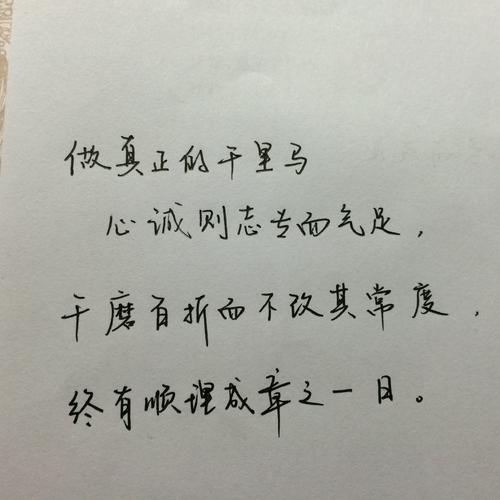 做真正的千里马
心诚则志专而气足，
千磨百折而不改其常度，
终有顺理成章之一日。